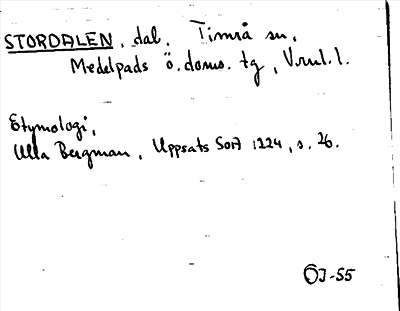 STORDALEN, dal, Timrå sn,
Medelpads ö. doms. tg, Vnrl. l.
Etymologi,
Ulla Bergman, Uppsats SOA 1224, s. 26.
ÖJ-55